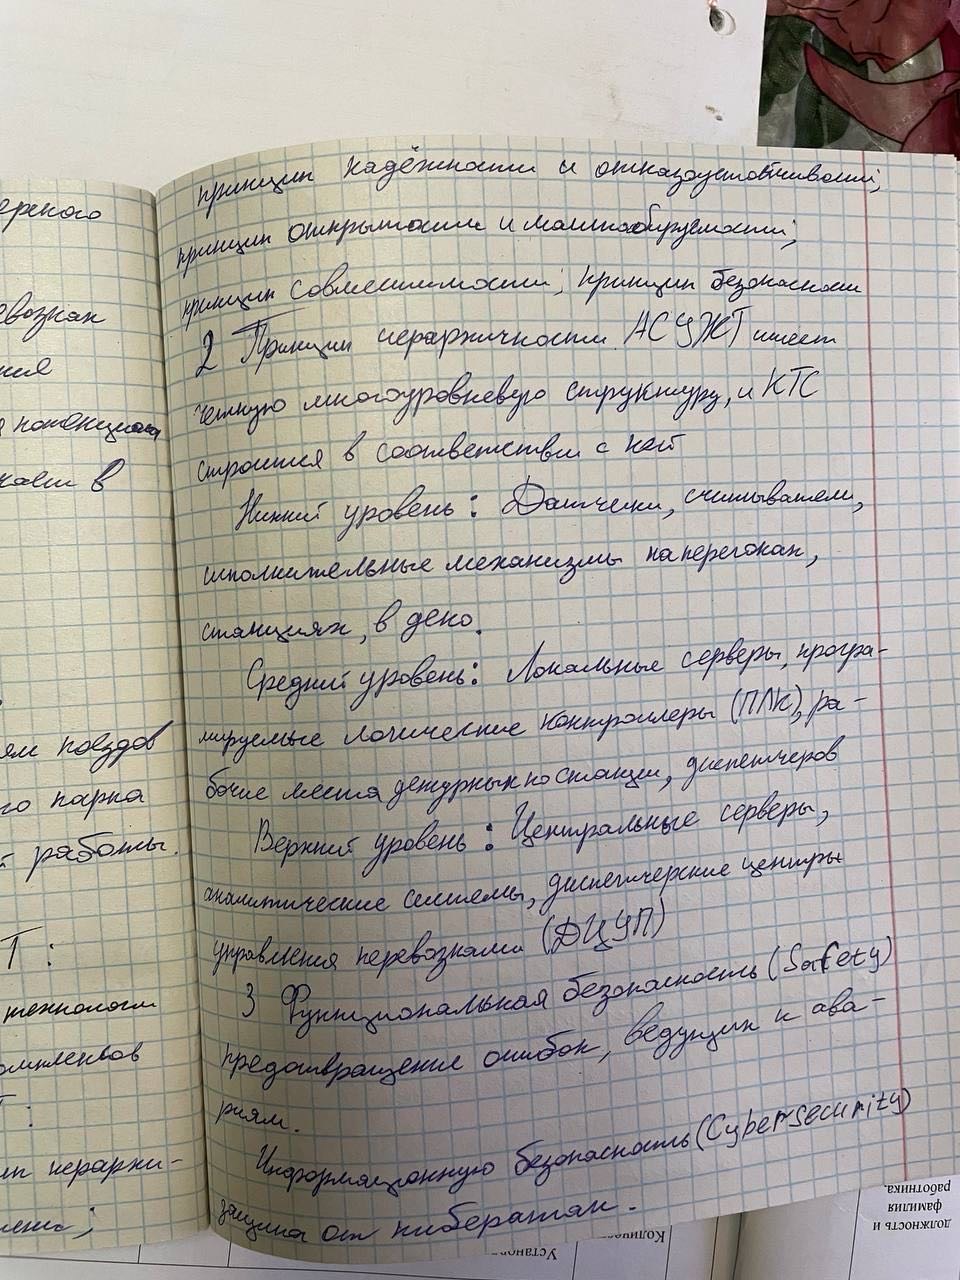 ерского
евозках
ние
потенциала
в
ям поездов
го парка
й работы.
Т:
технологи
омплексов
Т:
ип иерархи-
принцип надёжности и отказоустойчивости;
принцип открытости и масштабируемости;
принцип совместимости; принцип безопасности
2 Принцип иерархичности. АСУЖТ имеет
четкую многоуровневую структуру, и КТС
строится в соответствии с ней
Нижний уровень: Датчики, считыватели,
исполнительные механизмы на перегонах,
станциях, в депо.
Средний уровень: Локальные серверы, програ-
мируемые логические контроллеры (ПЛК), ра-
бочие места дежурных по станции, диспетчеров
Верхний уровень: Центральные серверы,
аналитические системы, диспетчерские центры
управления перевозками (ДЦУП)
3 Функциональная безопасность (Safety)
предотвращение ошибок, ведущих к ава-
риям.
Информационную безопасность (Cybersecurity)
защита от кибератак.
должность и
фамилия
работника.
Количес
Установ